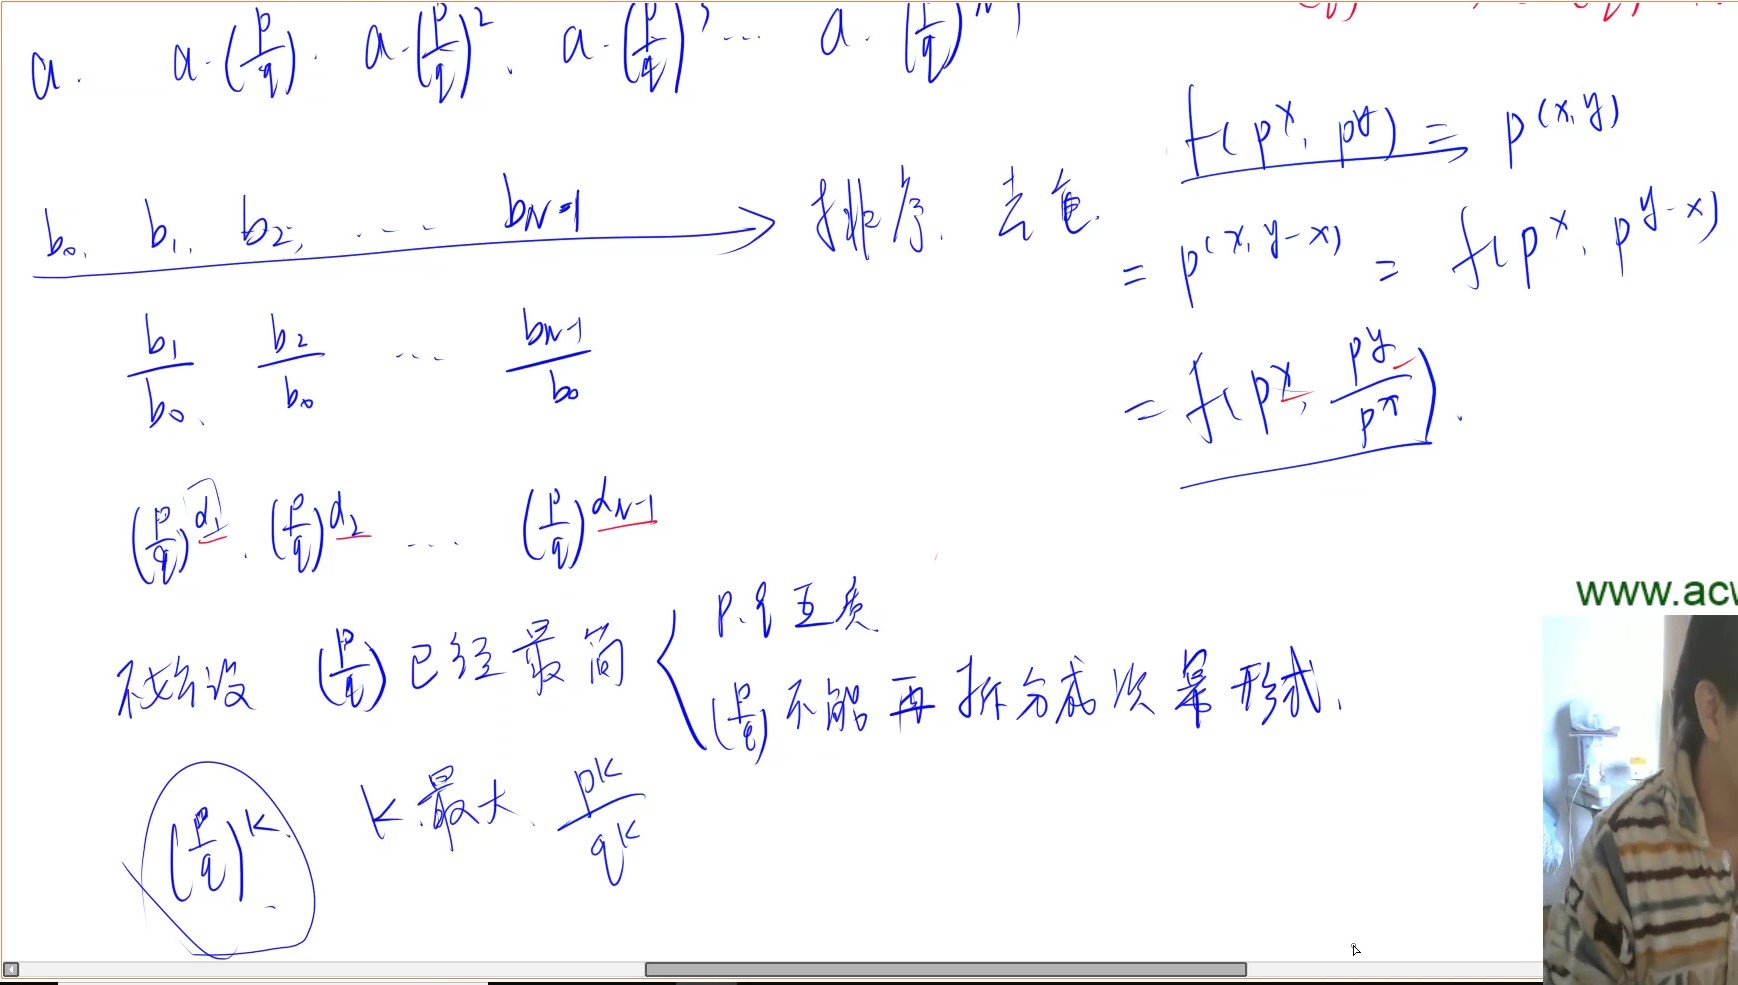 a. a·(p/q). a·(p/q)², a·(p/q)³ ... a·(p/q)
f(p^x, p^y) = p^(x,y)
b₀, b₁, b₂, .... b_{N-1} → 排序. 去重.
= p^(x, y-x) = f(p^x, p^{y-x})
b₁/b₀. b₂/b₀ ... b_{N-1}/b₀
= f(p^x, p^y/p^x).
(p/q)^{α₁}. (p/q)^{α₂} ... (p/q)^{α_{N-1}}
www.acw
p.q 互质
不妨设 (p/q) 已经最简 {
(p/q) 不能再拆分成次幂形式.
(p/q)^k. k 最大. p^k/q^k